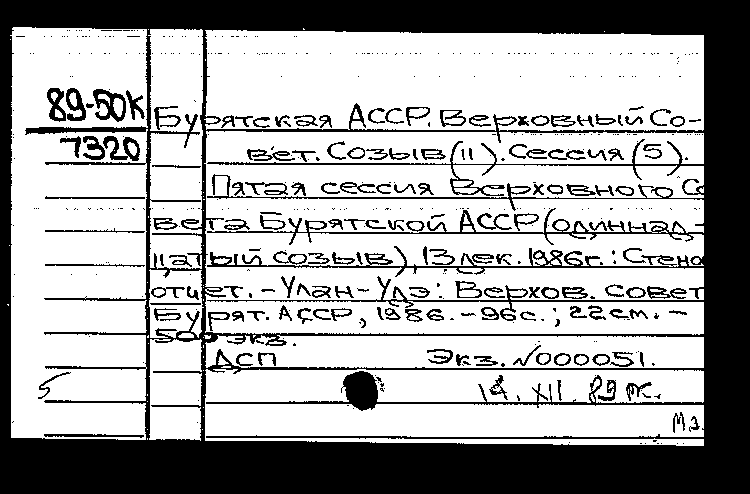 89-50К
7320
Бурятская АССР. Верховный Со-
вет. Созыв (11). Сессия (5).
Пятая сессия Верховного Со
вета Бурятской АССР (одиннад-
цатый созыв), 13 дек. 1986г.: Стено
отчет. - Улан-Удэ: Верхов. совет
Бурят. АССР, 1986. - 96с.; 22см. -
500 экз.
ДСП Экз. №000051.
5
14. XII. 89